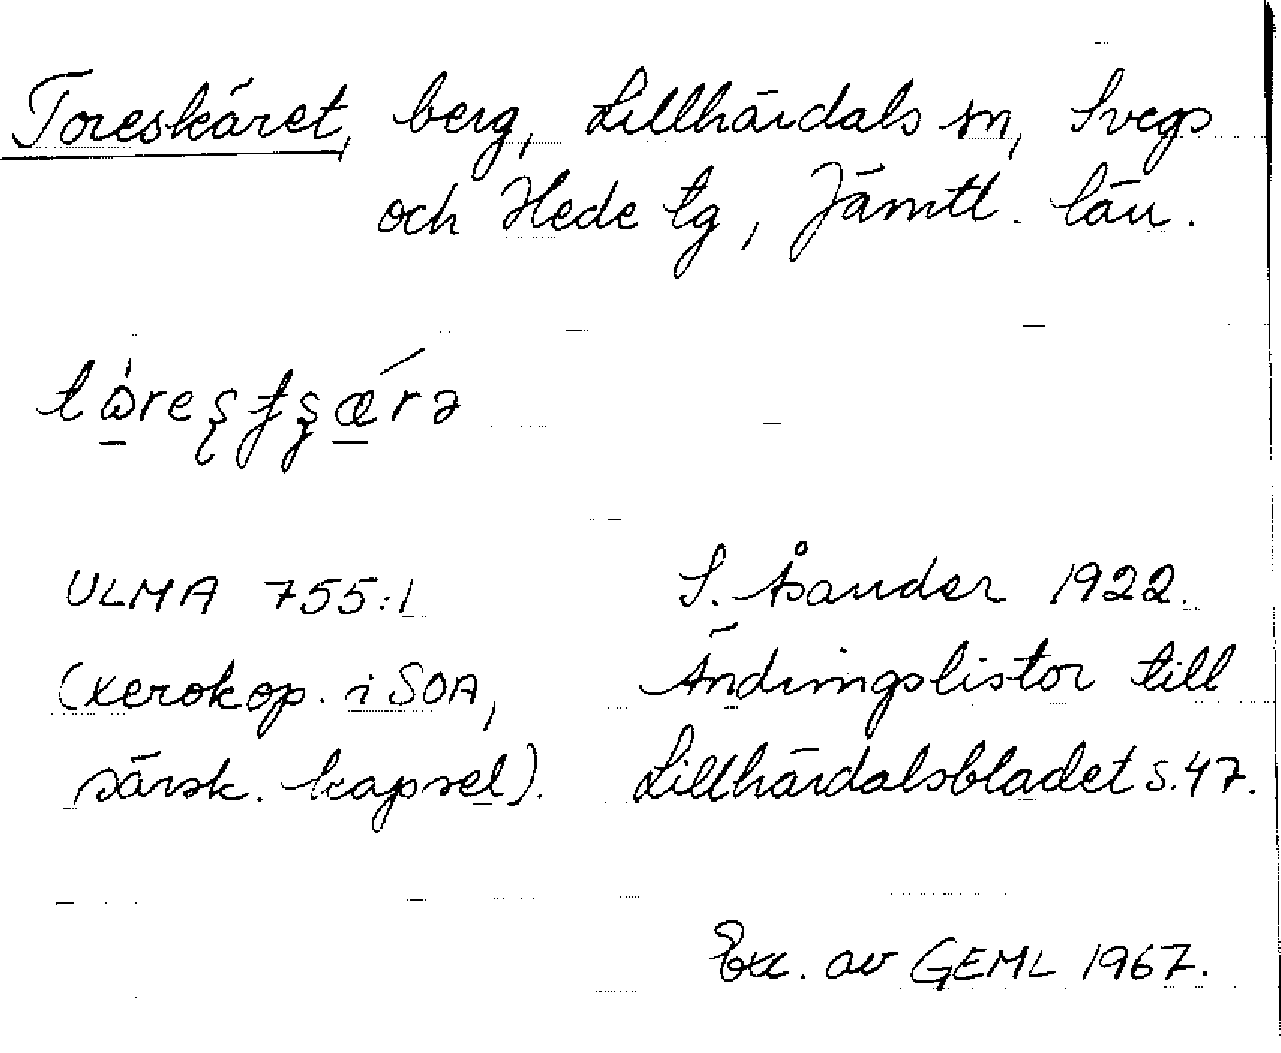 Toreskäret, berg, Lillhärdals sn, Svegs
och Hede tg, Jämtl. län.
ULMA 755:1
S. Åsander 1922.
(xerokop. i SOA,
Ändringslistor till
särsk. kapsel).
Lillhärdalsbladet s. 47.
Exc. av GEML 1967.